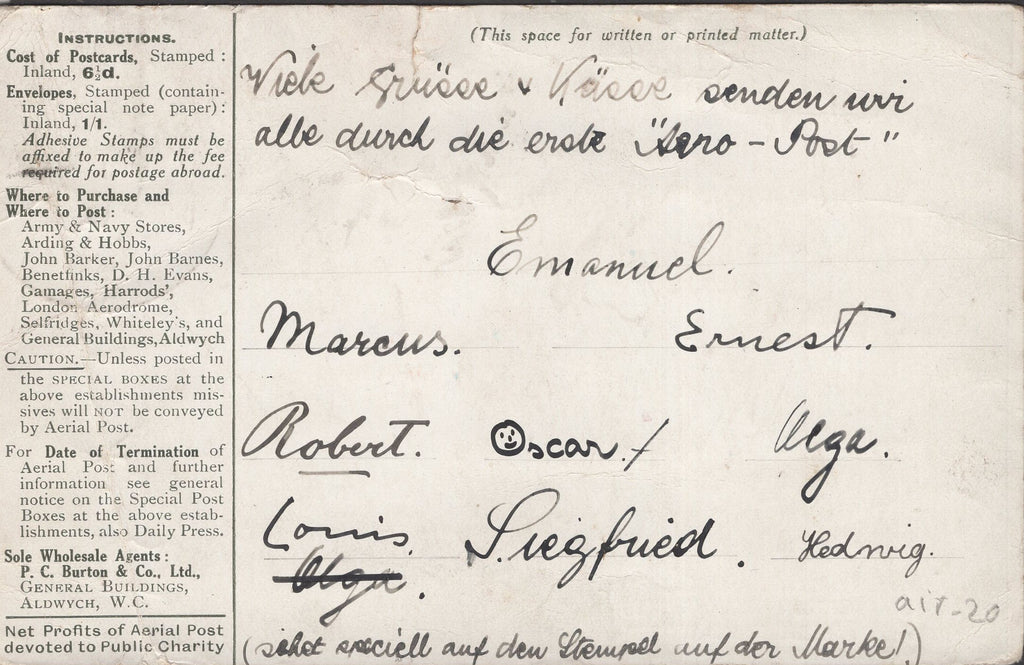 INSTRUCTIONS.
Cost of Postcards, Stamped :
Inland, 6½d.
Envelopes, Stamped (contain-
ing special note paper) :
Inland, 1/1.
Adhesive Stamps must be
affixed to make up the fee
required for postage abroad.
Where to Purchase and
Where to Post :
Army & Navy Stores,
Arding & Hobbs,
John Barker, John Barnes,
Benetfinks, D. H. Evans,
Gamages, Harrods',
London Aerodrome,
Selfridges, Whiteley's, and
General Buildings, Aldwych
CAUTION.—Unless posted in
the SPECIAL BOXES at the
above establishments mis-
sives will NOT be conveyed
by Aerial Post.
For Date of Termination of
Aerial Post and further
information see general
notice on the Special Post
Boxes at the above estab-
lishments, also Daily Press.
Sole Wholesale Agents :
P. C. Burton & Co., Ltd.,
GENERAL BUILDINGS,
ALDWYCH, W.C.
Net Profits of Aerial Post
devoted to Public Charity
(This space for written or printed matter.)
Viele Grüsse & Küsse senden wir
alle durch die erste "Aero - Post"
Emanuel.
Marcus. Ernest.
Robert. Oscar. Olga.
Louis. Siegfried. Hedwig.
Olga.
air-20
(sehet speciell auf den Stempel auf der Marke!)